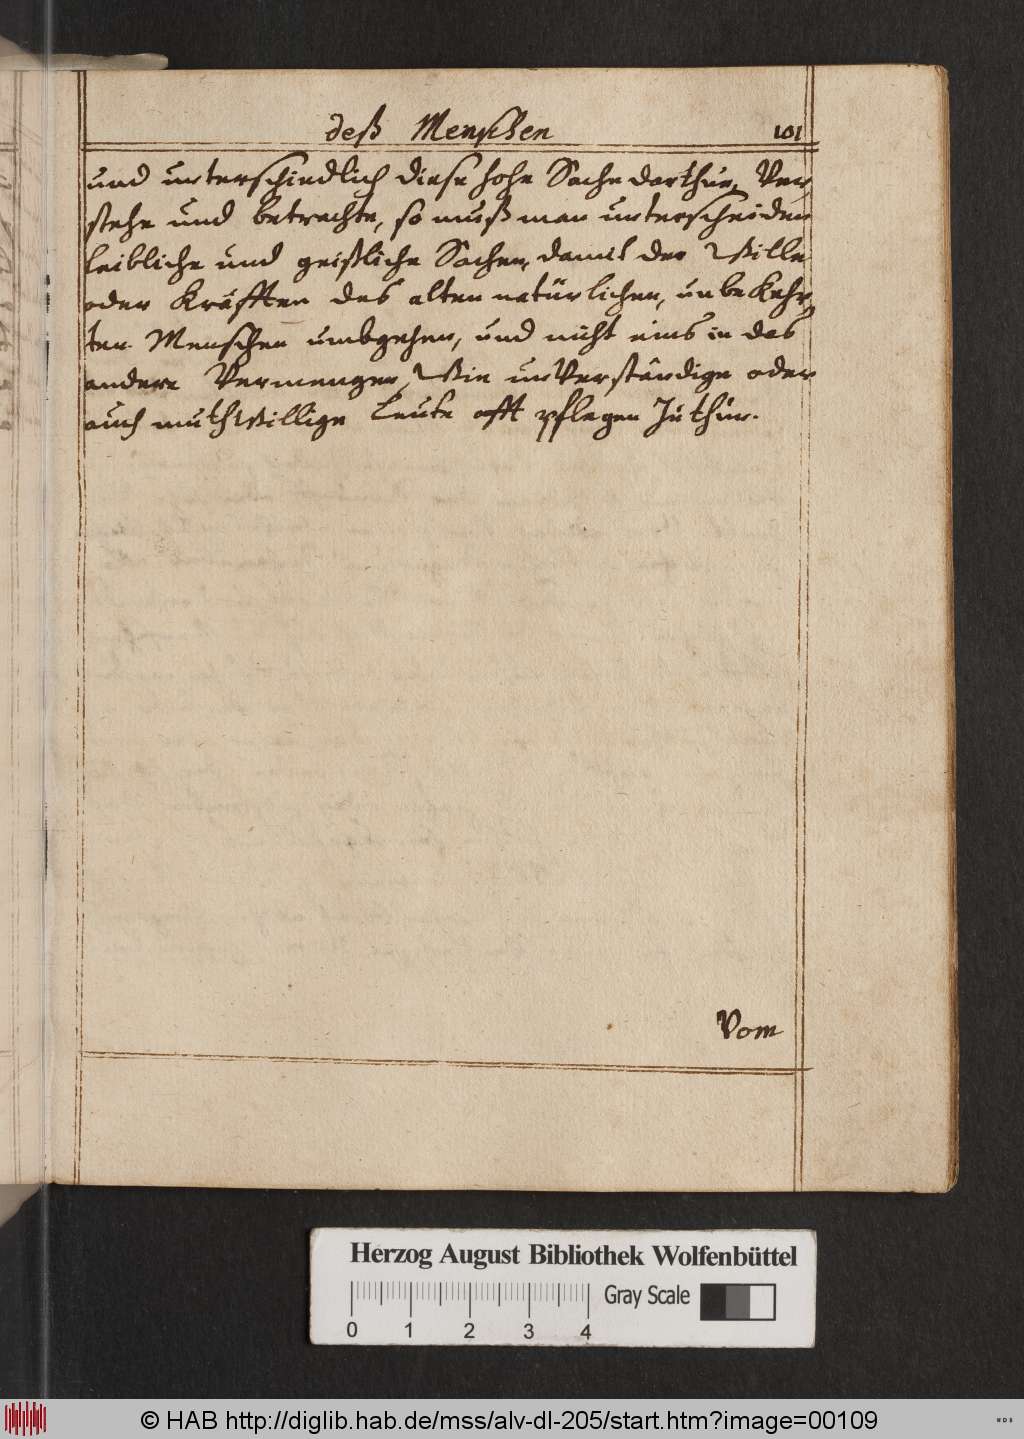 deß Menschen 101
und unterschiedlich diese hohe Sache darthue, Ver,
stehe und betrachte, so muß man unterscheiden
leibliche und geistliche Sachen, damit der Wille
oder Kräfften des alten natürlichen, unbekehr,
ten Menschen umbgehen, und nicht eins in das
andere Vermengen, Wie unVerständige oder
auch muthWillige Leute offt pflegen zuthun.
Vom
Herzog August Bibliothek Wolfenbüttel
Gray Scale
0 1 2 3 4
© HAB http://diglib.hab.de/mss/alv-dl-205/start.htm?image=00109